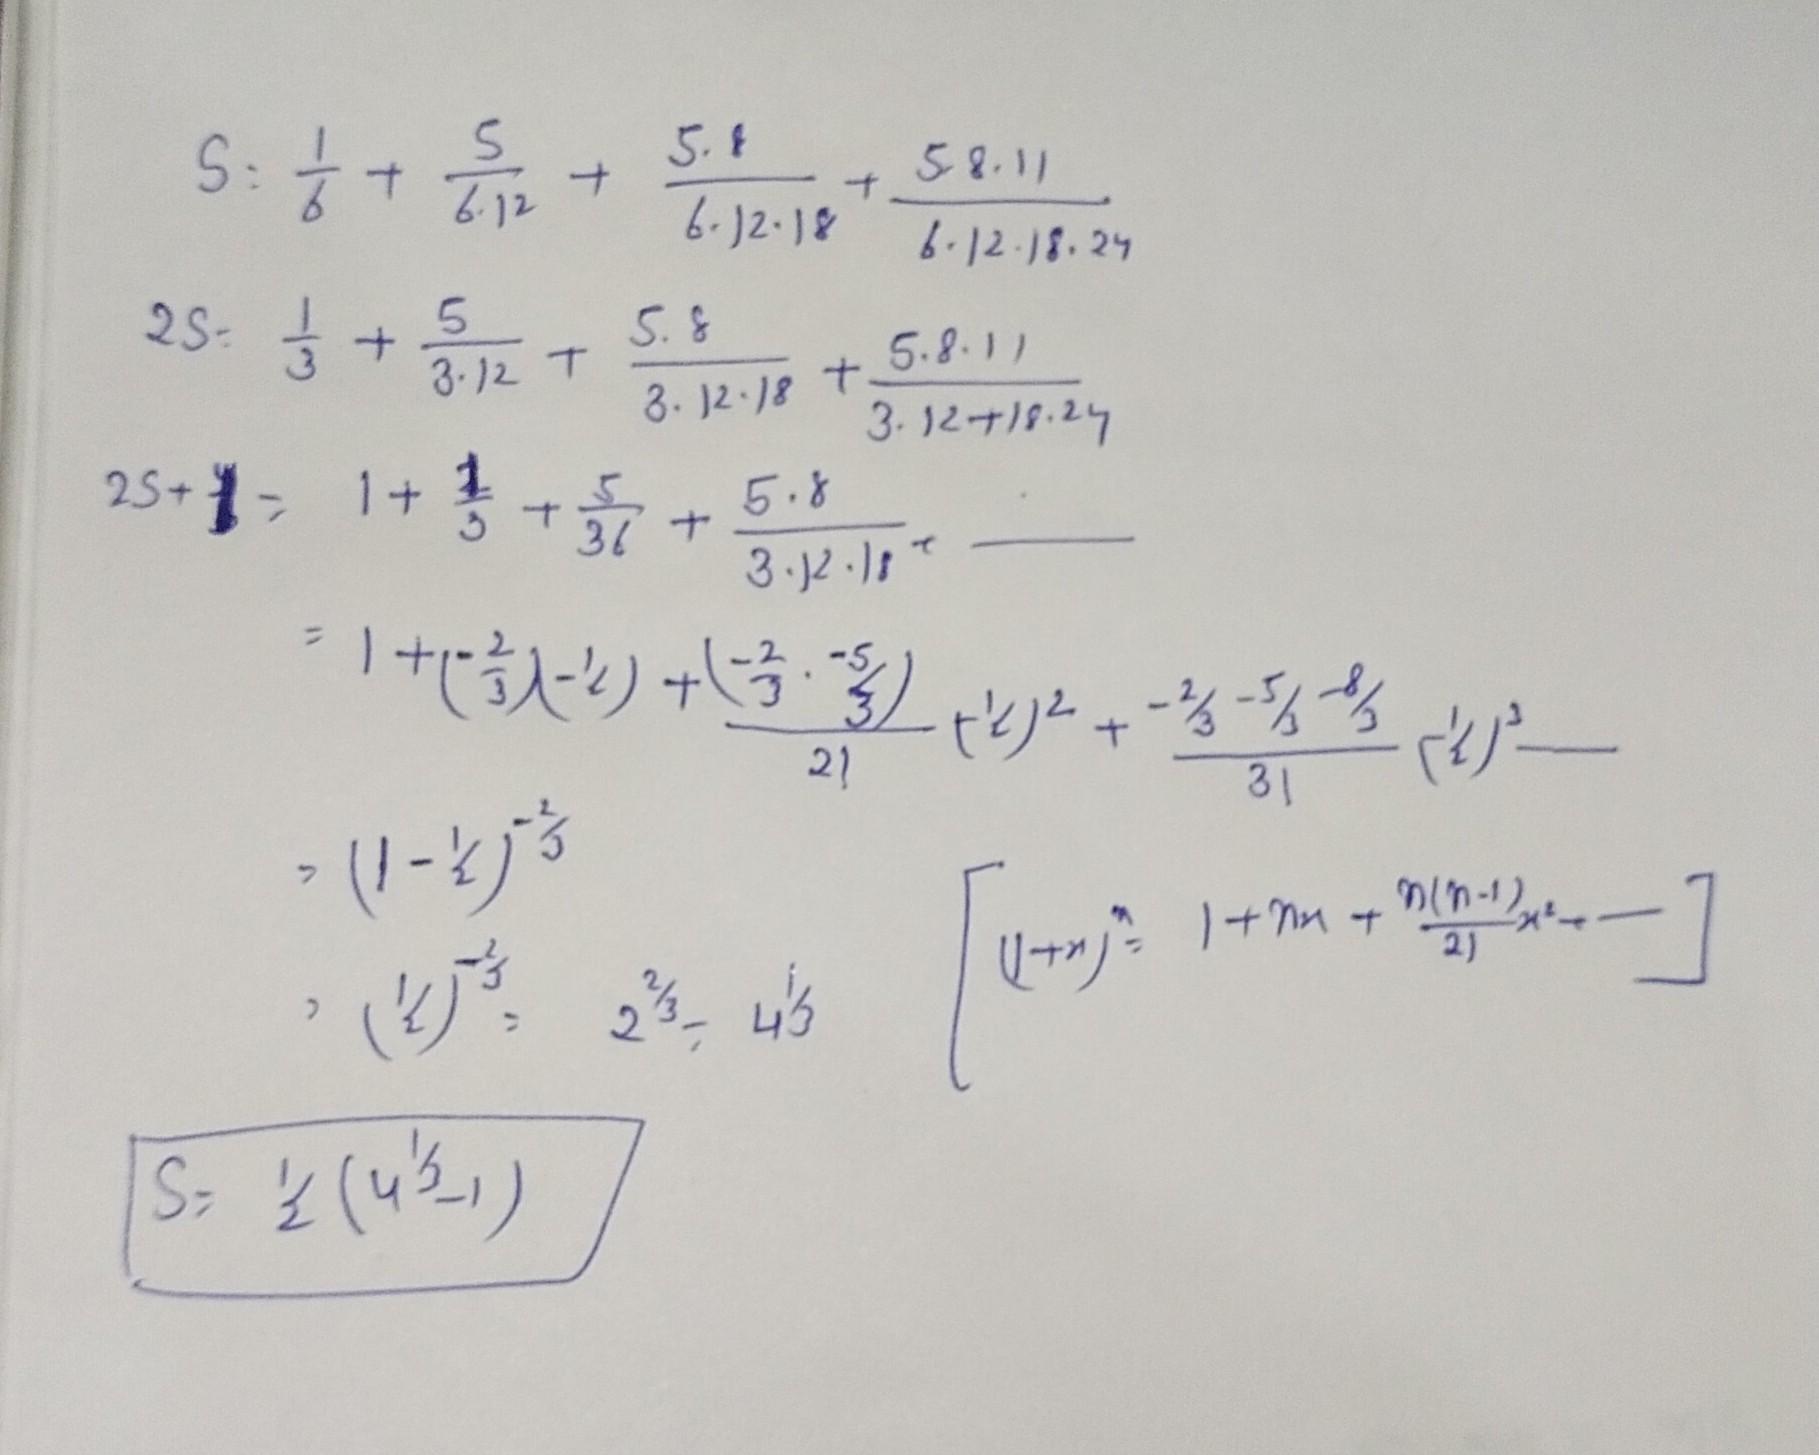 S: 1/6 + 5/6.12 + 5.8/6.12.18 + 5 8.11/6.12.18.24
2S= 1/3 + 5/3.12 + 5.8/3.12.18 + 5.8.11/3.12+18.24
2S+1= 1 + 1/3 + 5/36 + 5.8/3.12.18 + ——
= 1 + (-2/3)(-1/2) + (-2/3 . -5/3)/2! (-1/2)^2 + -2/3 -5/3 -8/3/3! (-1/2)^3 ——
= (1-1/2)^-2/3
[(1+x)^n = 1+nx + n(n-1)/2! x^2 + —]
= (1/2)^-2/3 = 2^2/3 = 4^1/3
S= 1/2 (4^1/3 -1)